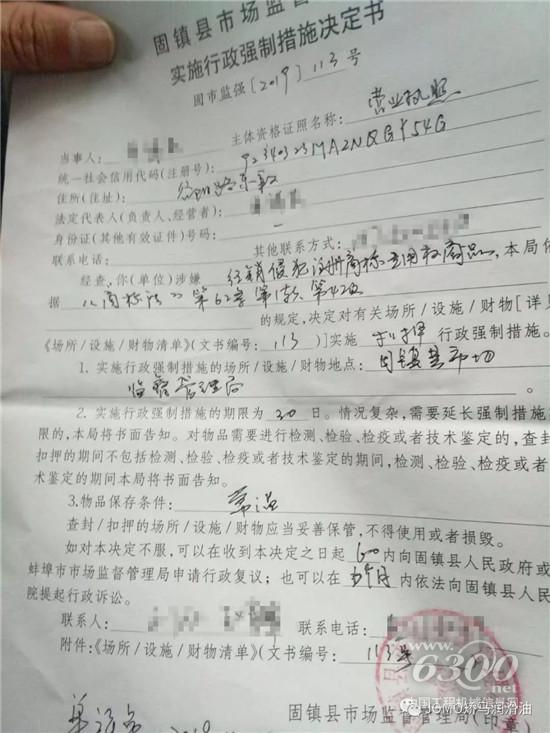 固镇县市场监督
实施行政强制措施决定书
固市监强[2019]113号
当事人: 主体资格证照名称: 营业执照
统一社会信用代码(注册号): 92340323MA2NQGY54G
住所(住址): 路东段
法定代表人(负责人、经营者):
身份证(其他有效证件)号码:
联系电话: 其他联系方式:
经查,你(单位)涉嫌 经销侵犯注册商标专用权商品,本局依
据 《商标法》第62条第1款第4项
的规定,决定对有关场所/设施/财物[详见
《场所/设施/财物清单》(文书编号: 113 )]实施 扣押 行政强制措施。
1. 实施行政强制措施的场所/设施/财物地点: 固镇县市场
监督管理局。
2. 实施行政强制措施的期限为 30 日。情况复杂,需要延长强制措施
限的,本局将书面告知。对物品需要进行检测、检验、检疫或者技术鉴定的,查封
扣押的期间不包括检测、检验、检疫或者技术鉴定的期间,检测、检验、检疫或者
术鉴定的期间本局将书面告知。
3.物品保存条件: 常温
查封/扣押的场所/设施/财物应当妥善保管,不得使用或者损毁。
如对本决定不服,可以在收到本决定之日起 60日内向固镇县人民政府或
蚌埠市市场监督管理局申请行政复议;也可以在 个月内依法向固镇县人民
院提起行政诉讼。
联系人: 联系电话:
附件:《场所/设施/财物清单》(文书编号: 113号
固镇县市场监督管理局(印章)
6300.net
中国工程机械信息网
JOMO娇马润滑油